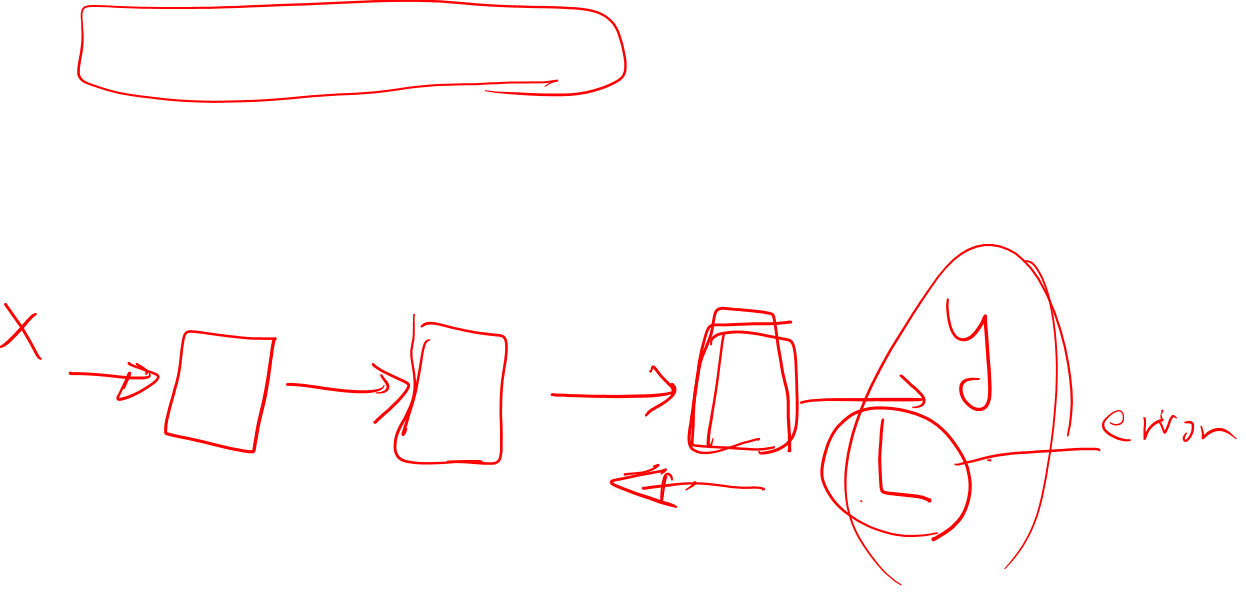 X
y
L
error